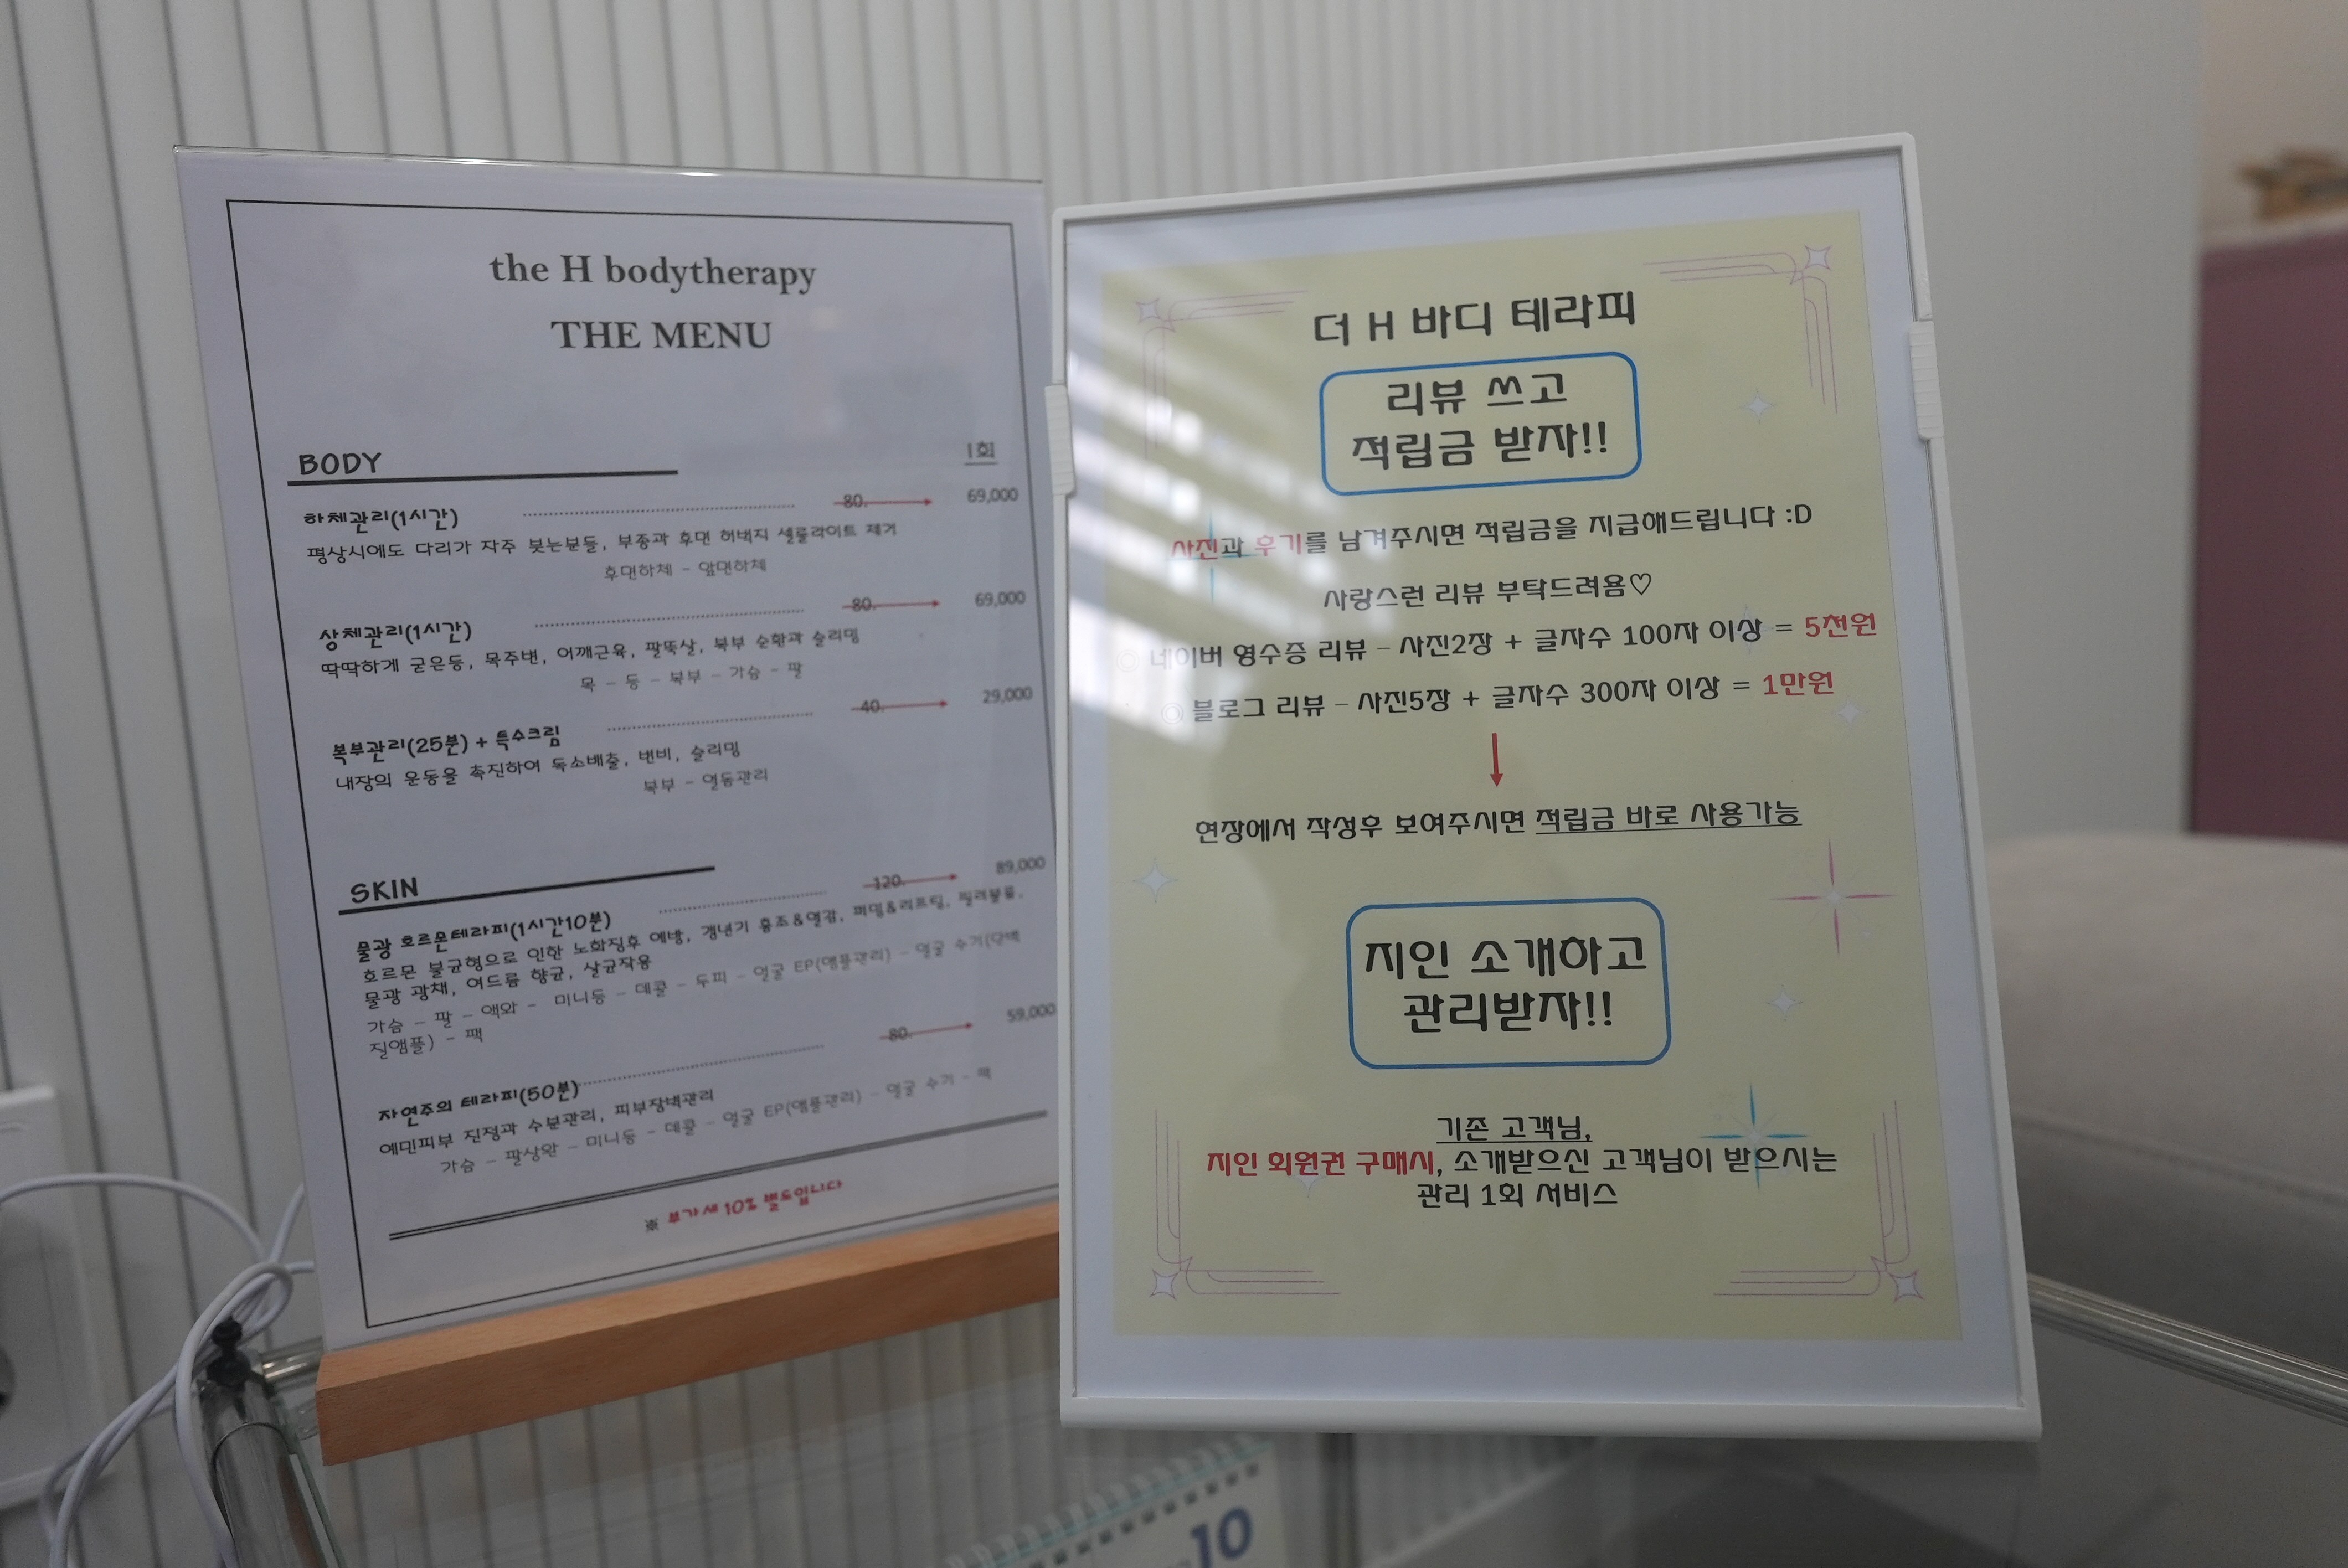 the H bodytherapy
THE MENU
BODY
1회
하체관리(1시간) 80. 69,000
평상시에도 다리가 자주 붓는분들, 부종과 후면 허벅지 셀룰라이트 제거
후면하체 - 앞면하체
상체관리(1시간) 80. 69,000
딱딱하게 굳은등, 목주변, 어깨근육, 팔뚝살, 복부 순환과 슬리밍
목 - 등 - 복부 - 가슴 - 팔
복부관리(25분) + 특수크림 40. 29,000
내장의 운동을 촉진하여 독소배출, 변비, 슬리밍
복부 - 열돔관리
SKIN
물광 호르몬테라피(1시간10분) 120. 89,000
호르몬 불균형으로 인한 노화징후 예방, 갱년기 홍조&열감, 퍼밍&리프팅,
물광 광채, 여드름 향균, 살균작용
가슴 - 팔 - 액와 - 미니등 - 데콜 - 두피 - 얼굴 EP(앰플관리) - 얼굴 수기(단백
질앰플) - 팩
자연주의 테라피(50분) 80. 59,000
예민피부 진정과 수분관리, 피부장벽관리
가슴 - 팔상완 - 미니등 - 데콜 - 얼굴 EP(앰플관리) - 얼굴 수기 - 팩
※ 부가세 10% 별도입니다
더 H 바디 테라피
리뷰 쓰고
적립금 받자!!
사진과 후기를 남겨주시면 적립금을 지급해드립니다 :D
사랑스런 리뷰 부탁드려욤♡
◎ 네이버 영수증 리뷰 - 사진2장 + 글자수 100자 이상 = 5천원
◎ 블로그 리뷰 - 사진5장 + 글자수 300자 이상 = 1만원
현장에서 작성후 보여주시면 적립금 바로 사용가능
지인 소개하고
관리받자!!
기존 고객님,
지인 회원권 구매시, 소개받으신 고객님이 받으시는
관리 1회 서비스
10